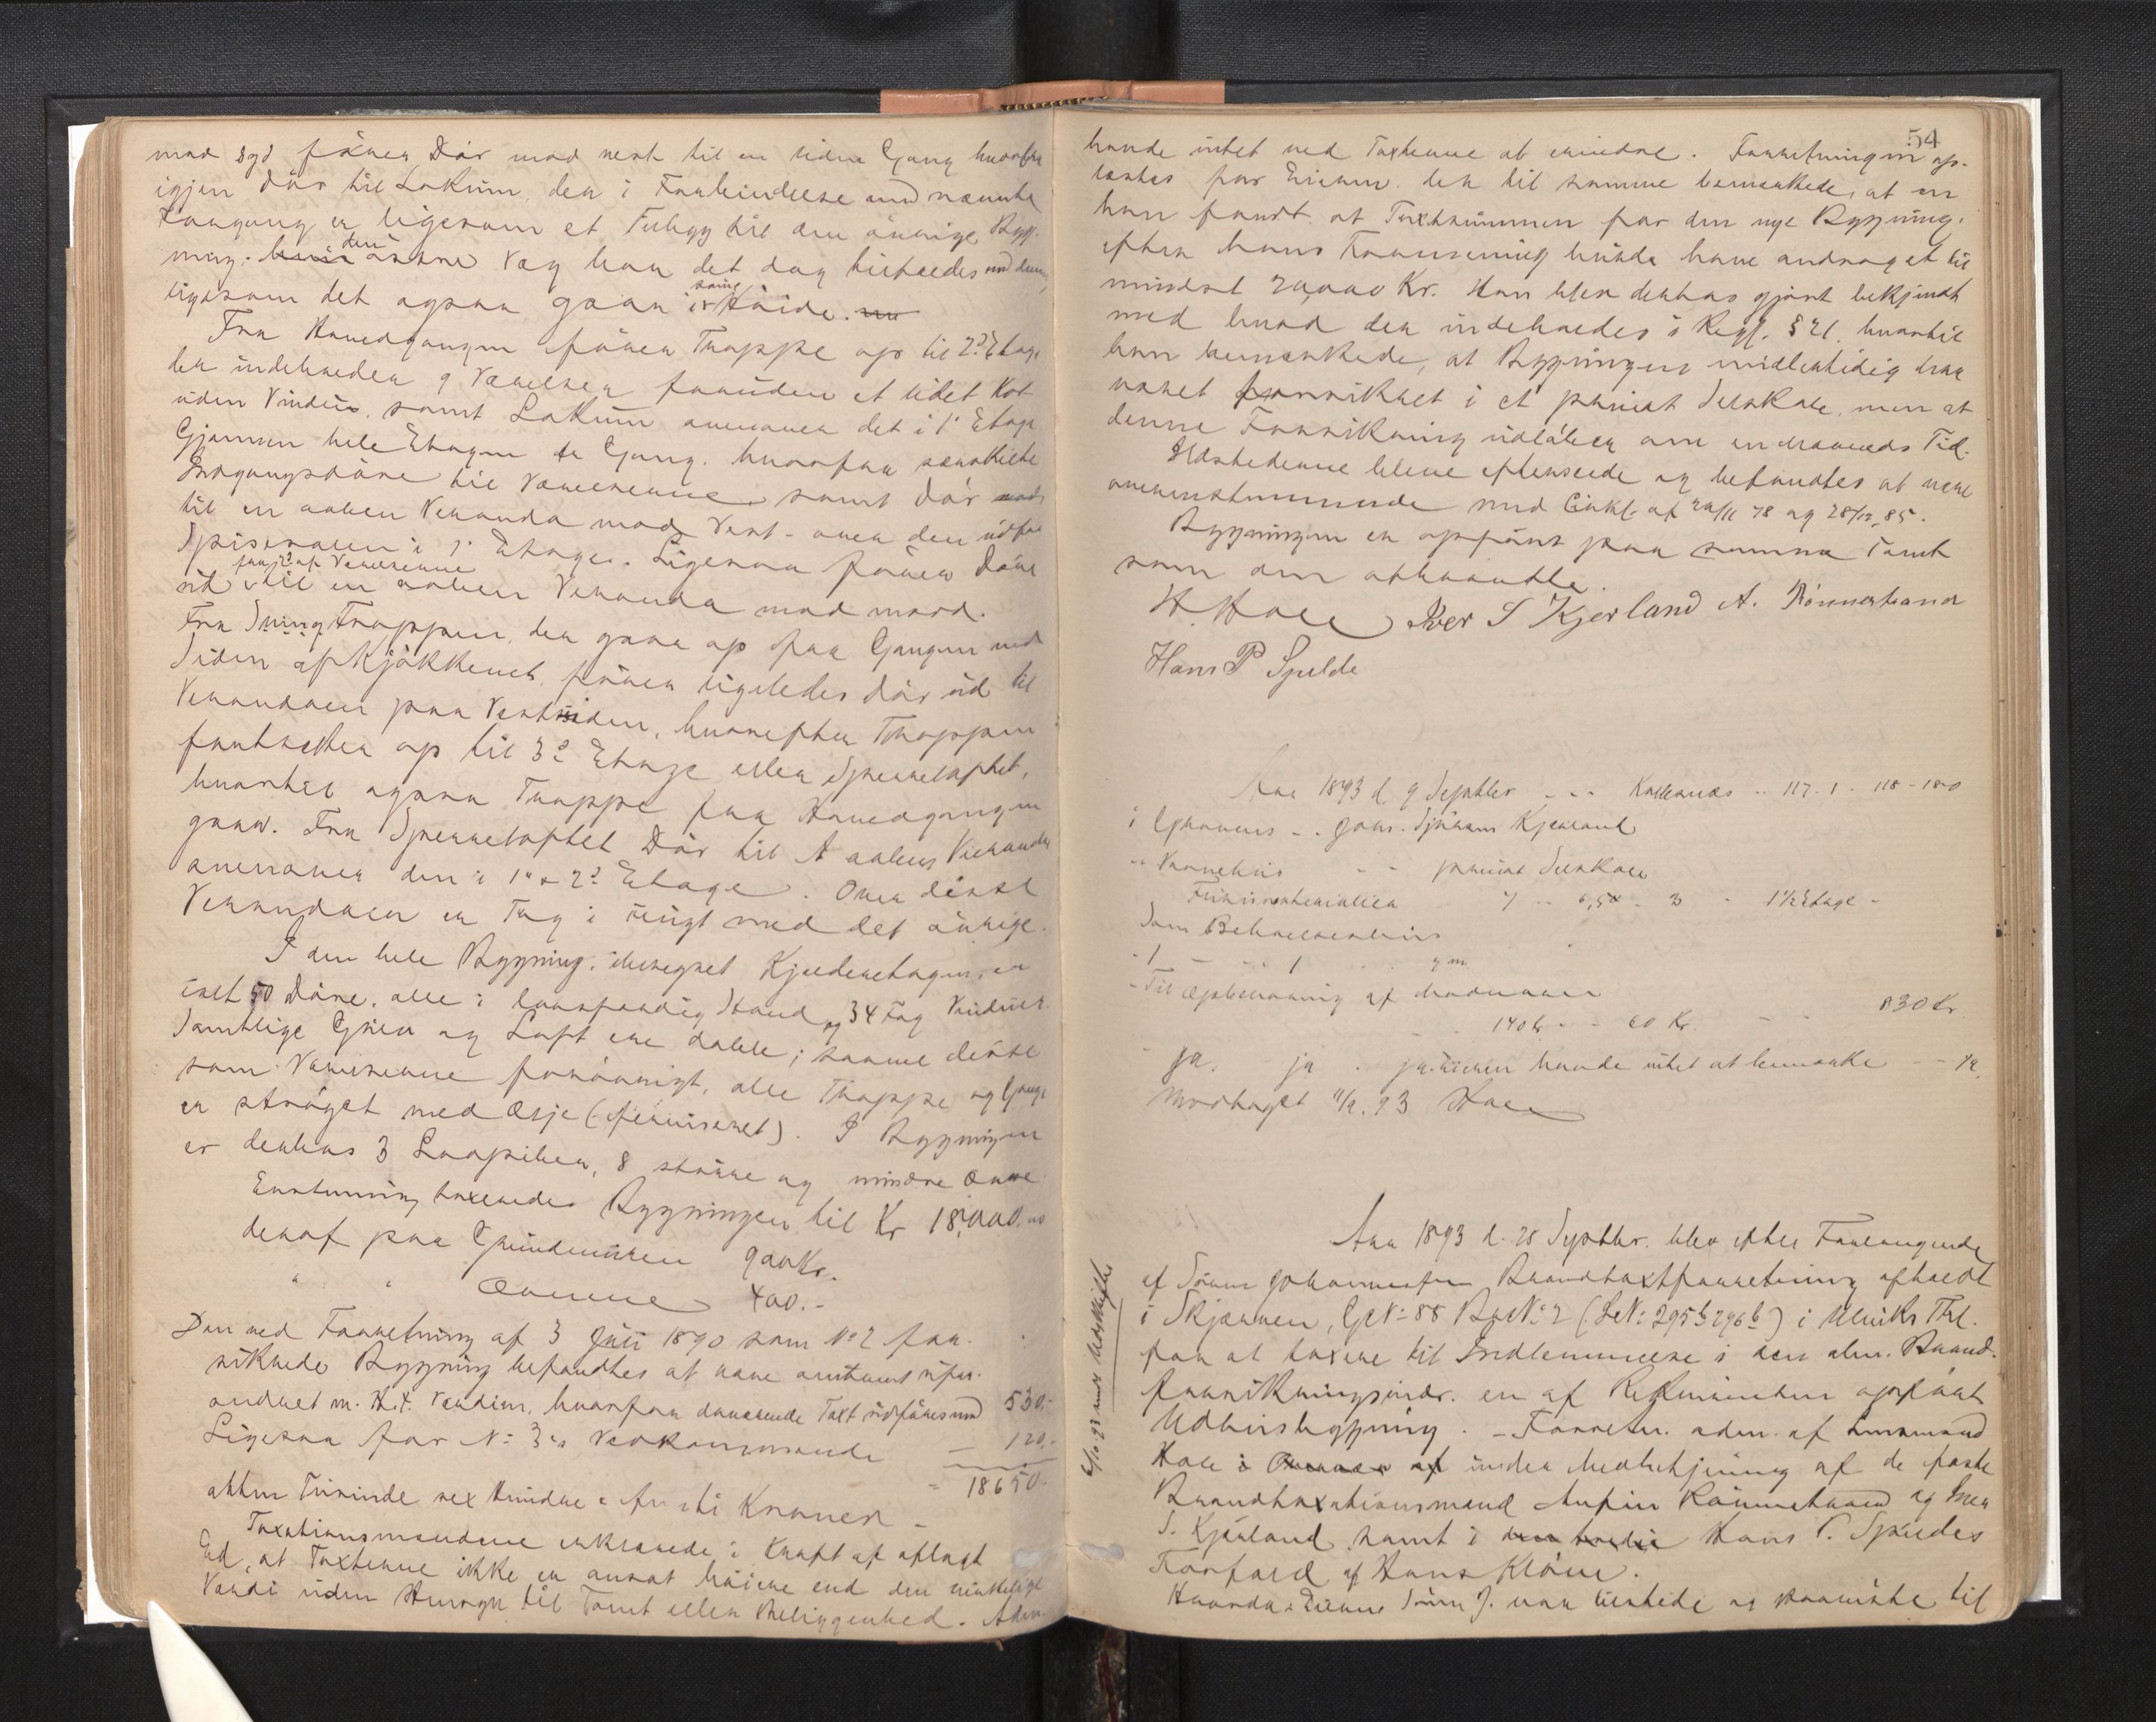 mod syd fører Dør mod vest til en liden Gang hvorfra
igjen Dør til Lokum, der i Forbindelse med nævnte
Forgang er ligesom et Tilbygg til den øvrige Byg-
ning. den østre Væg har det dog tilfælles med denne,
ligesom det ogsaa gaar i samme Høide.
Fra Hovedgangen fører Trappe op til 2d Etage
der indeholder 9 Værelser foruden et lidet Kot
uden Vindu, samt Lokum ovenover det i 1' Etage
Gjennem hele Etagen er Gang, hvorfra særskilte
Indgangsdøre til Værelserne samt Dør
til en aaben Veranda mod Vest - over den udfor
Spisesalen i 1' Etage. Ligesaa fører Døre
fra 2 af Værelserne
ud til en aaben Veranda mod nord.
Fra Svingtrappen, der gaar op fra Gangen ved
Siden af Kjøkkenet, fører ligeledes Dør ud til
Verandaen paa Vestsiden, hvorefter Trappen
fortsætter op til 3d Etage eller Sperreloftet,
hvortil ogsaa Trappe fra Hovedgangen
gaar. Fra Sperreloftet Dør til aaben Veranda
ovenover den i 1' & 2d Etage. Over disse
Verandaer er Tag i rugt med det øvrige.
I den hele Bygning, iberegnet Kjælderetagen, er
ialt 50 Døre, alle i forsvarlig Stand og 34 Fag Vinduer.
Samtlige Gulv og Loft ere doble; saavel disse
som Værelserne forøvrigt, alle Trapper og Gange
er strøget med Olje (ferniseret). I Bygningen
er derhos 3 Skorpiber, 8 større og mindre Ovne
Enstemmig taxeredes Bygningen til Kr 18,000.00
deraf paa Grundmuren 900 Kr.
" " Ovnene 400.-
Den ved Forretning af 3 Juli 1890 som No 2 for-
sikrede Bygning befandtes at være omtrent ufor-
andret m. H. t. Værdien, hvorfor daværende Taxt udføres med 530.-
Ligesaa for No 3's Vedkommende — 120.-
= 18650.-
atten Tusinde sex Hundre & femti Kroner -
Taxationsmændene erklærede i Kraft af aflagt
Ed, at Taxterne ikke er ansat høiere end den virkelige
Værdi uden Hensyn til Tomt eller Beliggenhed. Adm.
54
havde intet ved Taxterne at erindre. Forretningen op-
læstes for Eieren, der til samme bemærkede, at
han fandt, at Taxtsummen for den nye Bygning,
efter hans Formening burde have andraget til
mindst 20,000 Kr. Han blev derhos gjort bekjendt
med hvad der indeholdes i Regl. § 21, hvortil
han bemærkede, at Bygningen midlertidig har
været forsikret i et privat Selskab, men at
denne Forsikring udløber om en Maaneds Tid.
Ildstederne bleve efterseede og befandtes at være
overensstemmende med Cirkl. af 20/11 78 og 28/12 85.
Bygningen er opført paa samme Tomt
som den afbrændte.
H. Hoee Iver S Kjerland A. Rønnestrand
Hans P Spilde
Aar 1893 d 9 Septbr - - - 117 - 1 - 118 - 180
i Gravens - . Johs. Kjerland
- Vaanehus - - privat Selskab
7 - 6,50 - 3 - 1 1/2 Etage -
Som Beboelseshus
- 1 - - 1 - - 9 m
- Til Opbevaring af Madvarer
830 Kr.
140 kr - - 60 Kr.
- ja. ja . ja. Eieren havde intet at bemærke - - ja.
Modtaget 11/9. 93 Hoee
Aar 1893 d. 28 Septbr. blev efter Forlangende
af Søren Johannessen Brandtaxtforretning afholdt
i Skjerven, G.No 88 Bs.No 2 (L.No 295b 296b) i Ulviks Thl.
for at taxere til Indlemmelse i den alm. Brand-
forsikringsindr. en af Rekvirenten opført
Udhusbygning. - Forretn. adm. af Lensmand
Hoee under Medbetjening af de faste
Brandtaxationsmænd Anfin Rønnestrand og Iver
S. Kjerland samt i Hans P. Spildes
Forfald af Hans Kløve.
Huusets Eiere Søren J. var tilstede og paaviste til
6/10 93 sendt Udskrift